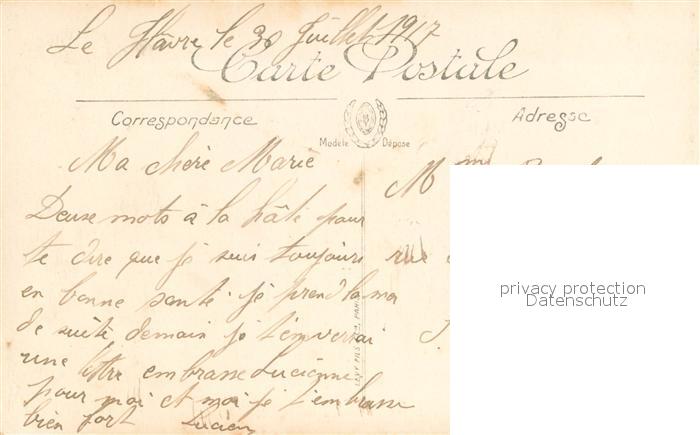 Le Hâvre le 30 Juillet 1917
Carte Postale
Correspondance
Adresse
Modèle Déposé
Ma chère Marie
Deuse mots à la hâte pour
te dire que je suis toujours
en bonne santé. je prend la
de suite, demain je t'enverrai
une lettre embrasse Lucienne
pour moi et moi je t'embrasse
bien fort Lucien
M me
rue
LEVY FILS PARIS
privacy protection
Datenschutz